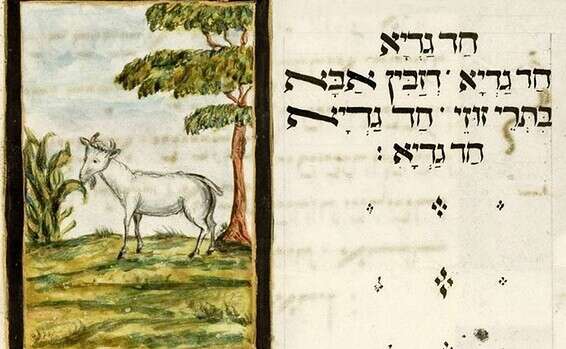 חַד גַדְיָא
חַד גַדְיָא · דִזְבִּין אַבָּא
בִּתְרֵי זוּזֵי · חַד גַדְיָא
חַד גַדְיָא :